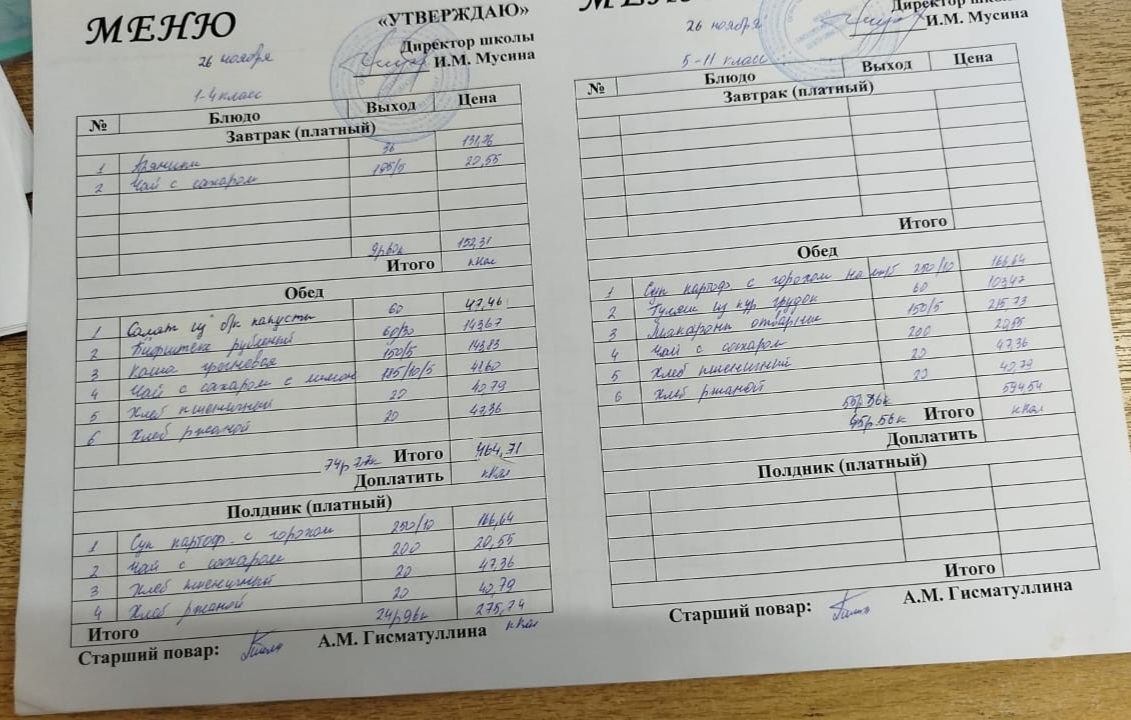 МЕНЮ
«УТВЕРЖДАЮ»
Директор школы
И.М. Мусина
26 ноября
1-4 класс
№ Блюдо Выход Цена
Завтрак (платный)
1 Пряники 36 131,76
2 Чай с сахаром 195/5 20,55
152,31
Итого кКал
Обед
1 Салат из б/к капусты 60 47,46
2 Бифштекс рубленый 60/30 143,67
3 Каша гречневая 150/5 143,83
4 Чай с сахаром с лимон 195/10/5 41,60
5 Хлеб пшеничный 20 40,79
6 Хлеб ржаной 20 47,36
74р 77к Итого 464,71
Доплатить кКал
Полдник (платный)
1 Суп картоф. с горохом 250/10 166,64
2 Чай с сахаром 200 20,55
3 Хлеб пшеничный 20 47,36
4 Хлеб ржаной 20 40,79
Итого 24р96к 275,24
кКал
Старший повар: А.М. Гисматуллина
26 ноября
Директор школы
И.М. Мусина
5-11 класс
№ Блюдо Выход Цена
Завтрак (платный)
Итого
Обед
1 Суп картоф. с горохом на 250/10 166,64
2 Гуляш из кур грудок 60 103,47
3 Макароны отварные 150/5 215,73
4 Чай с сахаром 200 20,55
5 Хлеб пшеничный 20 47,36
6 Хлеб ржаной 20 40,79
594,54
45р.56к Итого кКал
Доплатить
Полдник (платный)
Итого
Старший повар: А.М. Гисматуллина